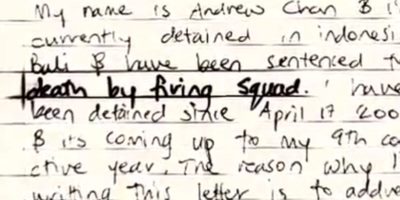 My name is Andrew Chan & i'
currently detained in indonesi
Bali & have been sentenced t
death by firing squad. I have
been detained since April 17 200
& its coming up to my 9th co
ctive year. The reason why I
writing this letter is to addre